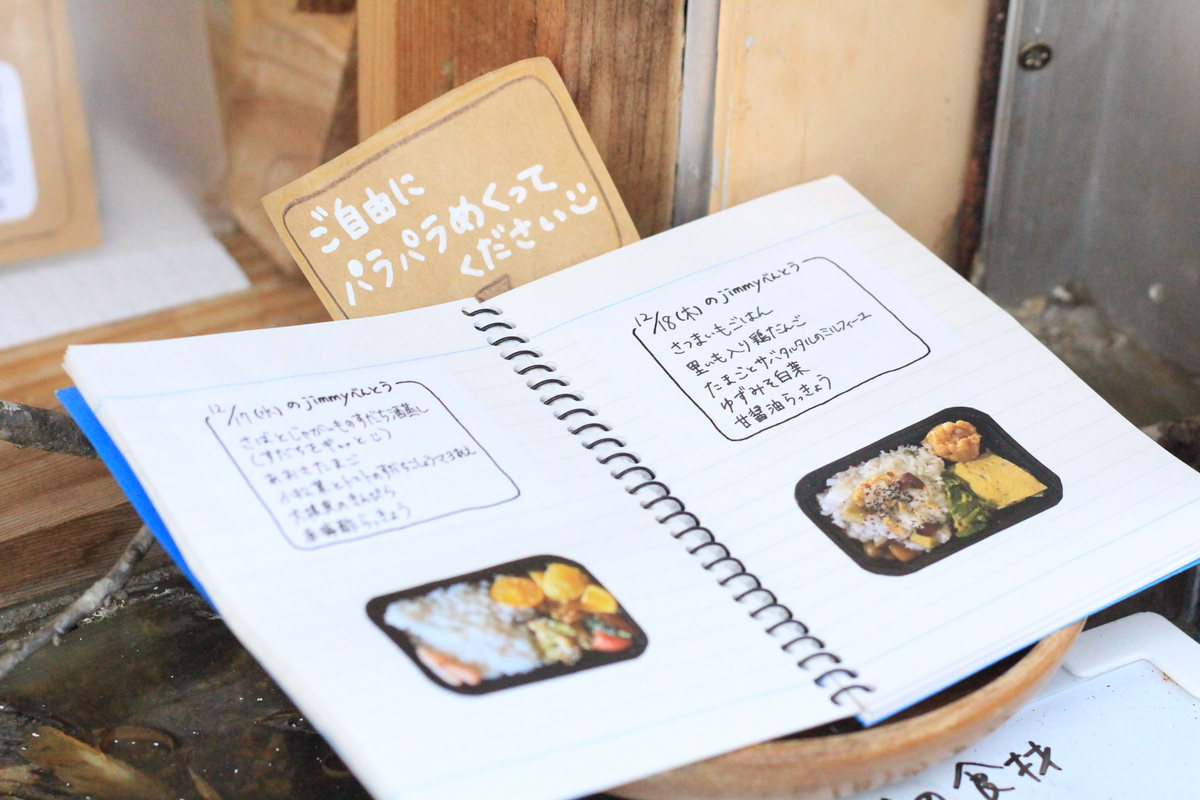 ご自由に
パラパラめくって
ください
12/17(水)のjimmyべんとう
さばとじゃがいものすだち酒蒸し
(すだちをギュッと)
あおさたまご
小松菜とトマトのすだちこしょうマヨあえ
大根葉のきんぴら
らっきょう
12/18(木)のjimmyべんとう
さつまいもごはん
里いも入り鶏だんご
たまごとサバタルタルのミルフィーユ
ゆずみそ白菜
甘醤油らっきょう
の食材